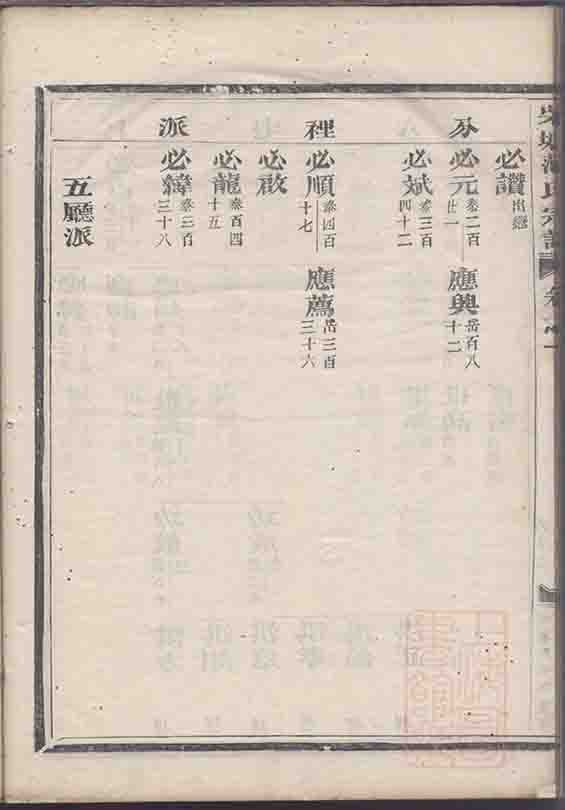 必讃 出繼
分
必元 泰二百廿一
應興 岳百八十二
必斌 泰三百四十二
裡
必順 泰四百十七
應薦 岳三百三十六
必啟
必龍 泰百四十五
派
必緯 泰三百三十八
五廳派